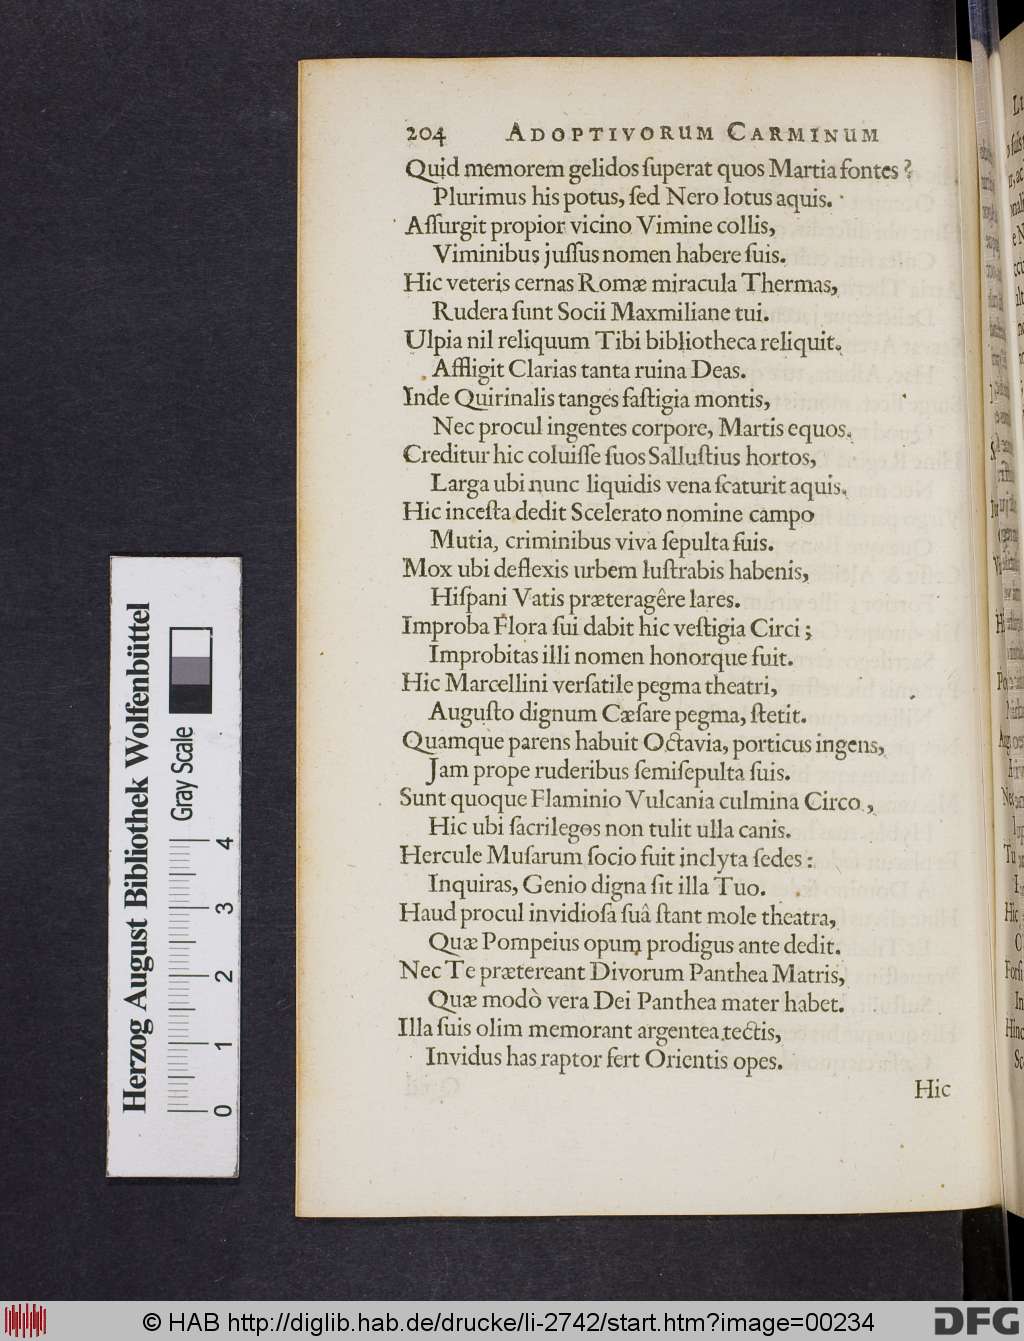 204 ADOPTIVORUM CARMINUM
Quid memorem gelidos ſuperat quos Martia fontes?
Plurimus his potus, ſed Nero lotus aquis.
Aſſurgit propior vicino Vimine collis,
Viminibus juſſus nomen habere ſuis.
Hic veteris cernas Romæ miracula Thermas,
Rudera ſunt Socii Maxmiliane tui.
Ulpia nil reliquum Tibi bibliotheca reliquit.
Affligit Clarias tanta ruina Deas.
Inde Quirinalis tanges faſtigia montis,
Nec procul ingentes corpore, Martis equos.
Creditur hic coluiſſe ſuos Salluſtius hortos,
Larga ubi nunc liquidis vena ſcaturit aquis.
Hic inceſta dedit Scelerato nomine campo
Mutia, criminibus viva ſepulta ſuis.
Mox ubi deflexis urbem luſtrabis habenis,
Hiſpani Vatis præteragêre lares.
Improba Flora ſui dabit hic veſtigia Circi;
Improbitas illi nomen honorque fuit.
Hic Marcellini verſatile pegma theatri,
Auguſto dignum Cæſare pegma, ſtetit.
Quamque parens habuit Octavia, porticus ingens,
Jam prope ruderibus ſemiſepulta ſuis.
Sunt quoque Flaminio Vulcania culmina Circo,
Hic ubi ſacrilegos non tulit ulla canis.
Hercule Muſarum ſocio fuit inclyta ſedes:
Inquiras, Genio digna ſit illa Tuo.
Haud procul invidioſa ſuâ ſtant mole theatra,
Quæ Pompeius opum prodigus ante dedit.
Nec Te prætereant Divorum Panthea Matris,
Quæ modò vera Dei Panthea mater habet.
Illa ſuis olim memorant argentea tectis,
Invidus has raptor fert Orientis opes.
Hic
Herzog August Bibliothek Wolfenbüttel
Gray Scale
0 1 2 3 4
© HAB http://diglib.hab.de/drucke/li-2742/start.htm?image=00234
DFG